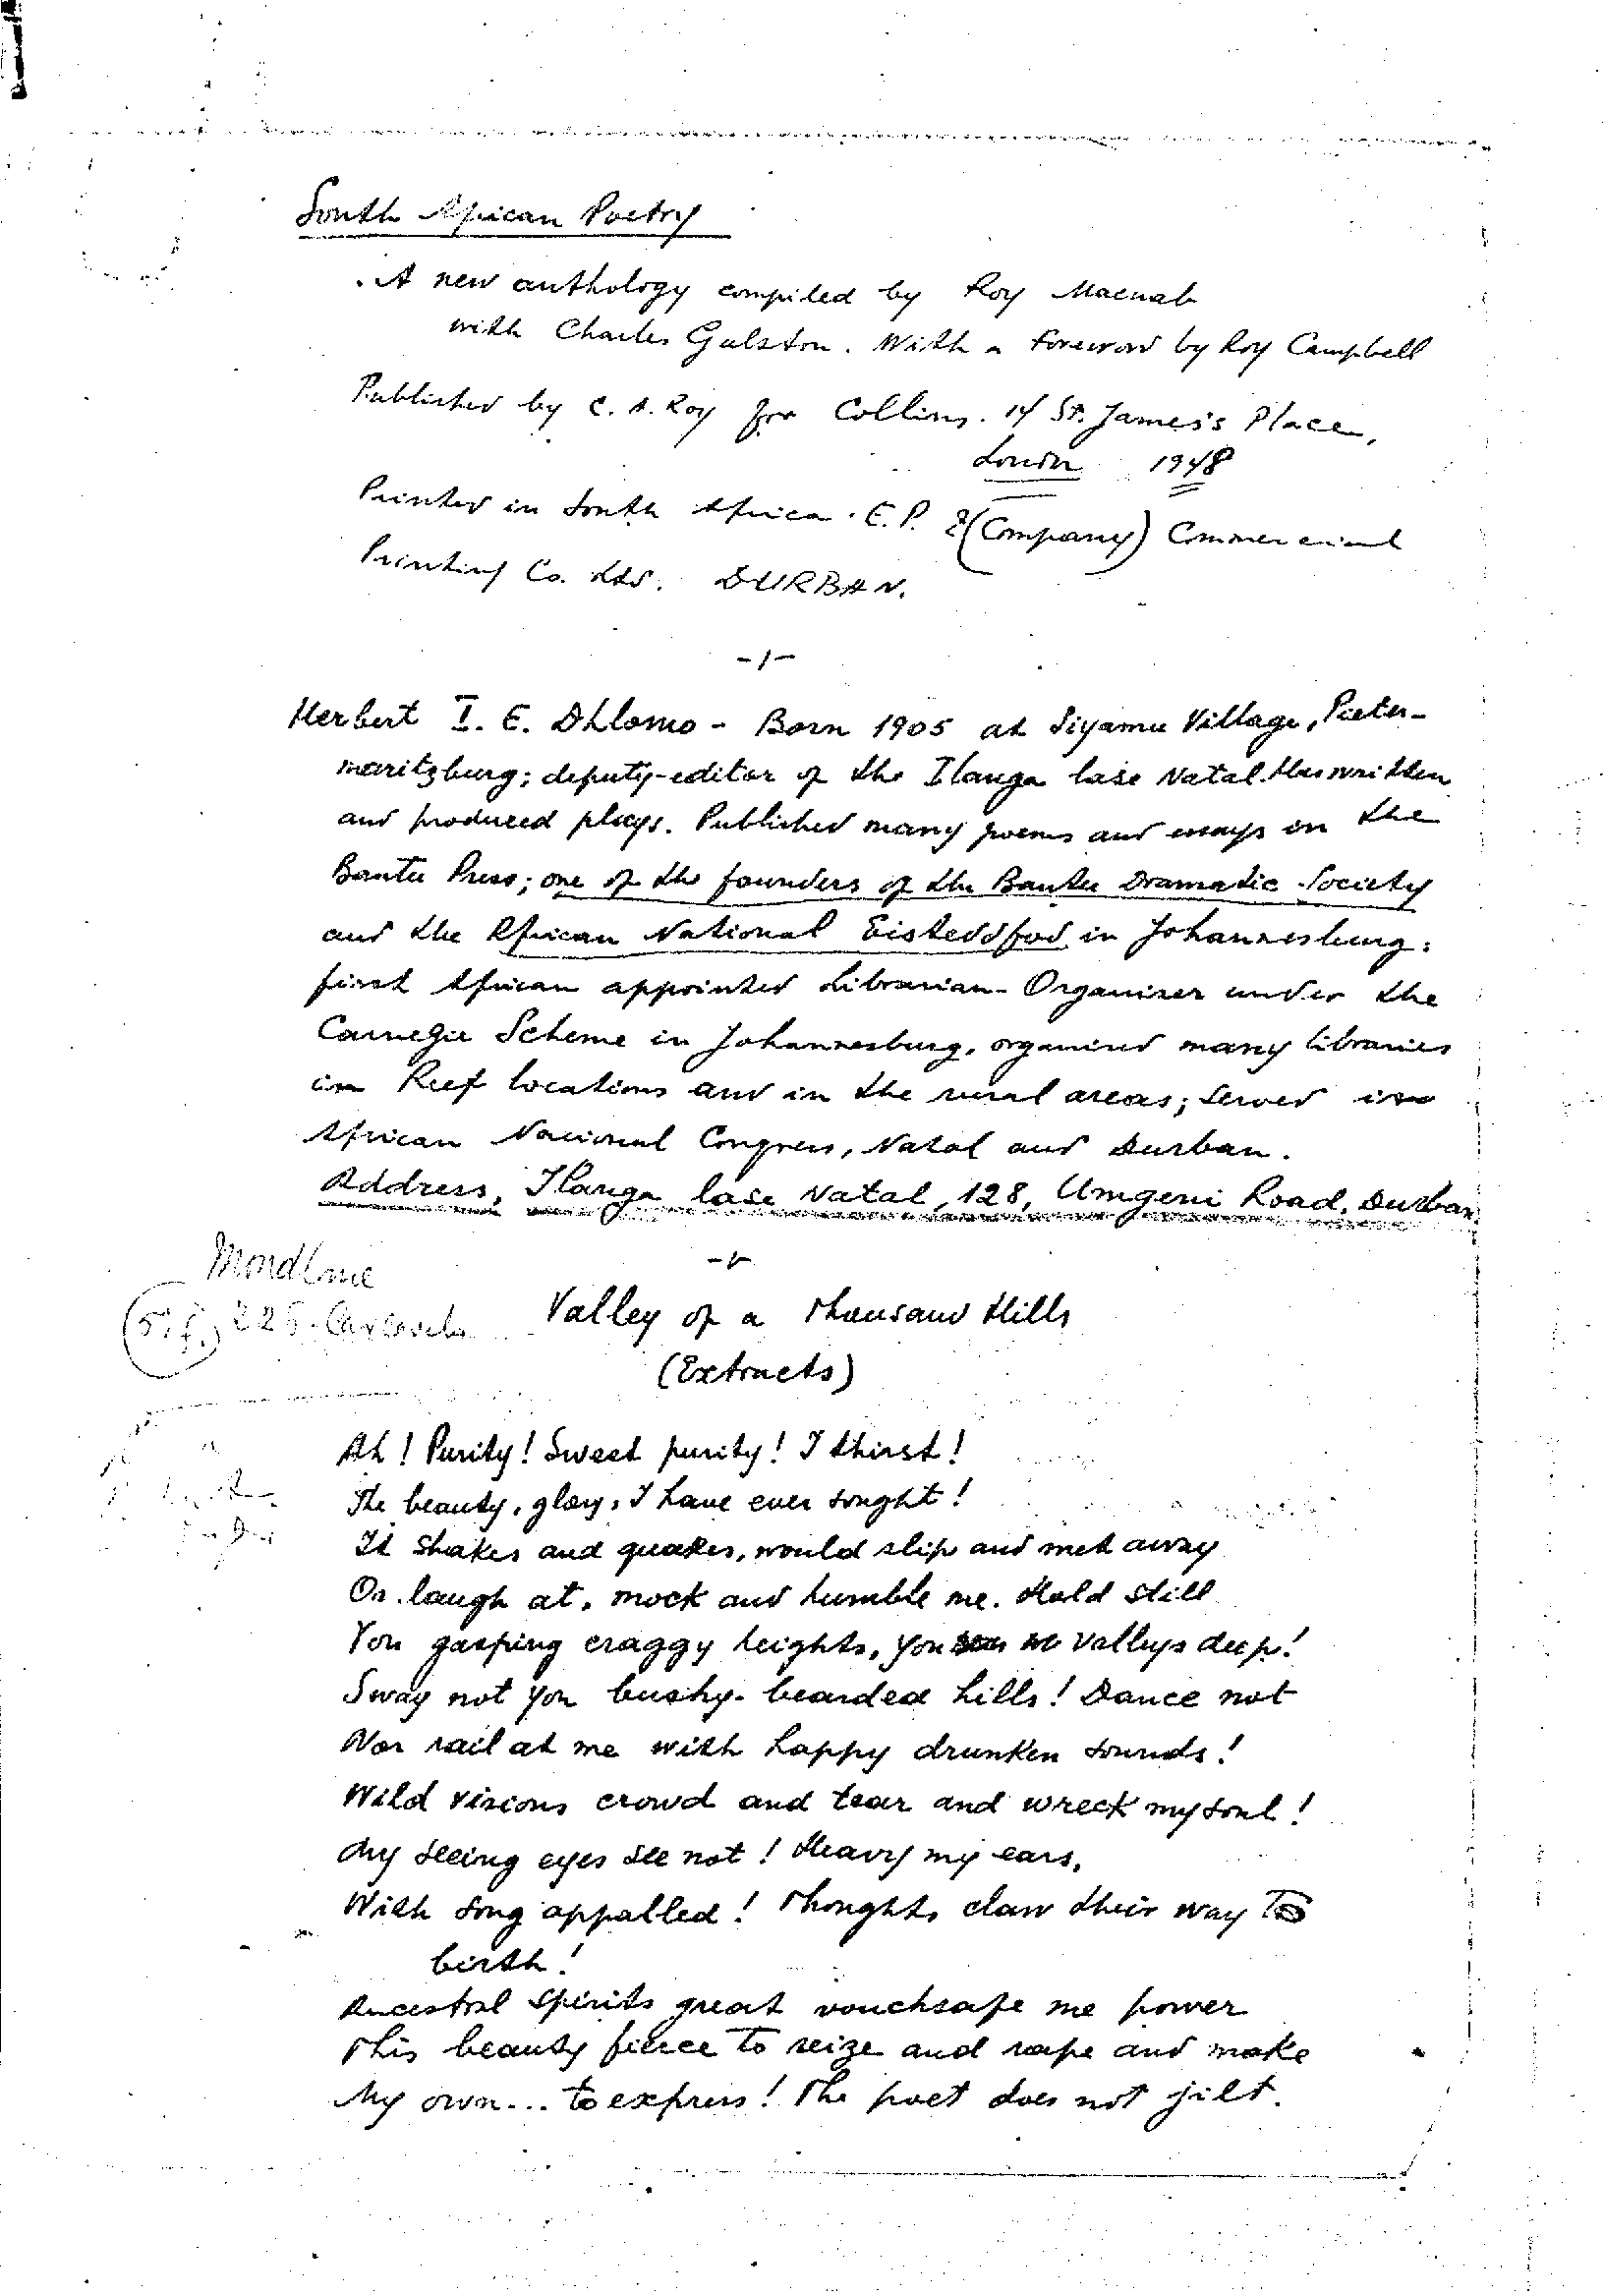 South African Poetry
A new anthology compiled by Roy Macnab
with Charles Gulston. With a Foreword by Roy Campbell
Published by C. A. Roy for Collins. 14 St. James's Place,
London 1948
Printed in South Africa. E. P. & (Company) Commercial
Printing Co. Ltd. DURBAN.
-/-
Herbert I. E. Dhlomo - Born 1905 at Siyamu Village, Pieter-
maritzburg; deputy-editor of the Ilanga lase Natal. Has written
and produced plays. Published many poems and essays in the
Bantu Press; one of the founders of the Bantu Dramatic Society
and the African National Eisteddfod in Johannesburg:
first African appointed Librarian-Organiser under the
Carnegie Scheme in Johannesburg, organised many libraries
in Reef locations and in the rural areas; served in
African Nacional Congress, Natal and Durban.
Address, Ilanga lase Natal, 128, Umgeni Road, Durban.
Mondlane
225
Valley of a Thousand Hills
(Extracts)
Ah! Purity! Sweet purity! I thirst!
The beauty, glory, I have ever sought!
It shakes and quakes, would slip and melt away
Or laugh at, mock and humble me. Hold still
You gasping craggy heights, you valleys deep!
Sway not you bushy-bearded hills! Dance not
Nor rail at me with happy drunken sounds!
Wild visions crowd and tear and wreck my soul!
My seeing eyes see not! Heavy my ears,
With song appalled! Thoughts claw their way to
birth!
Ancestral spirits great vouchsafe me power
This beauty fierce to seize and rape and make
My own... to express! The poet does not jilt.